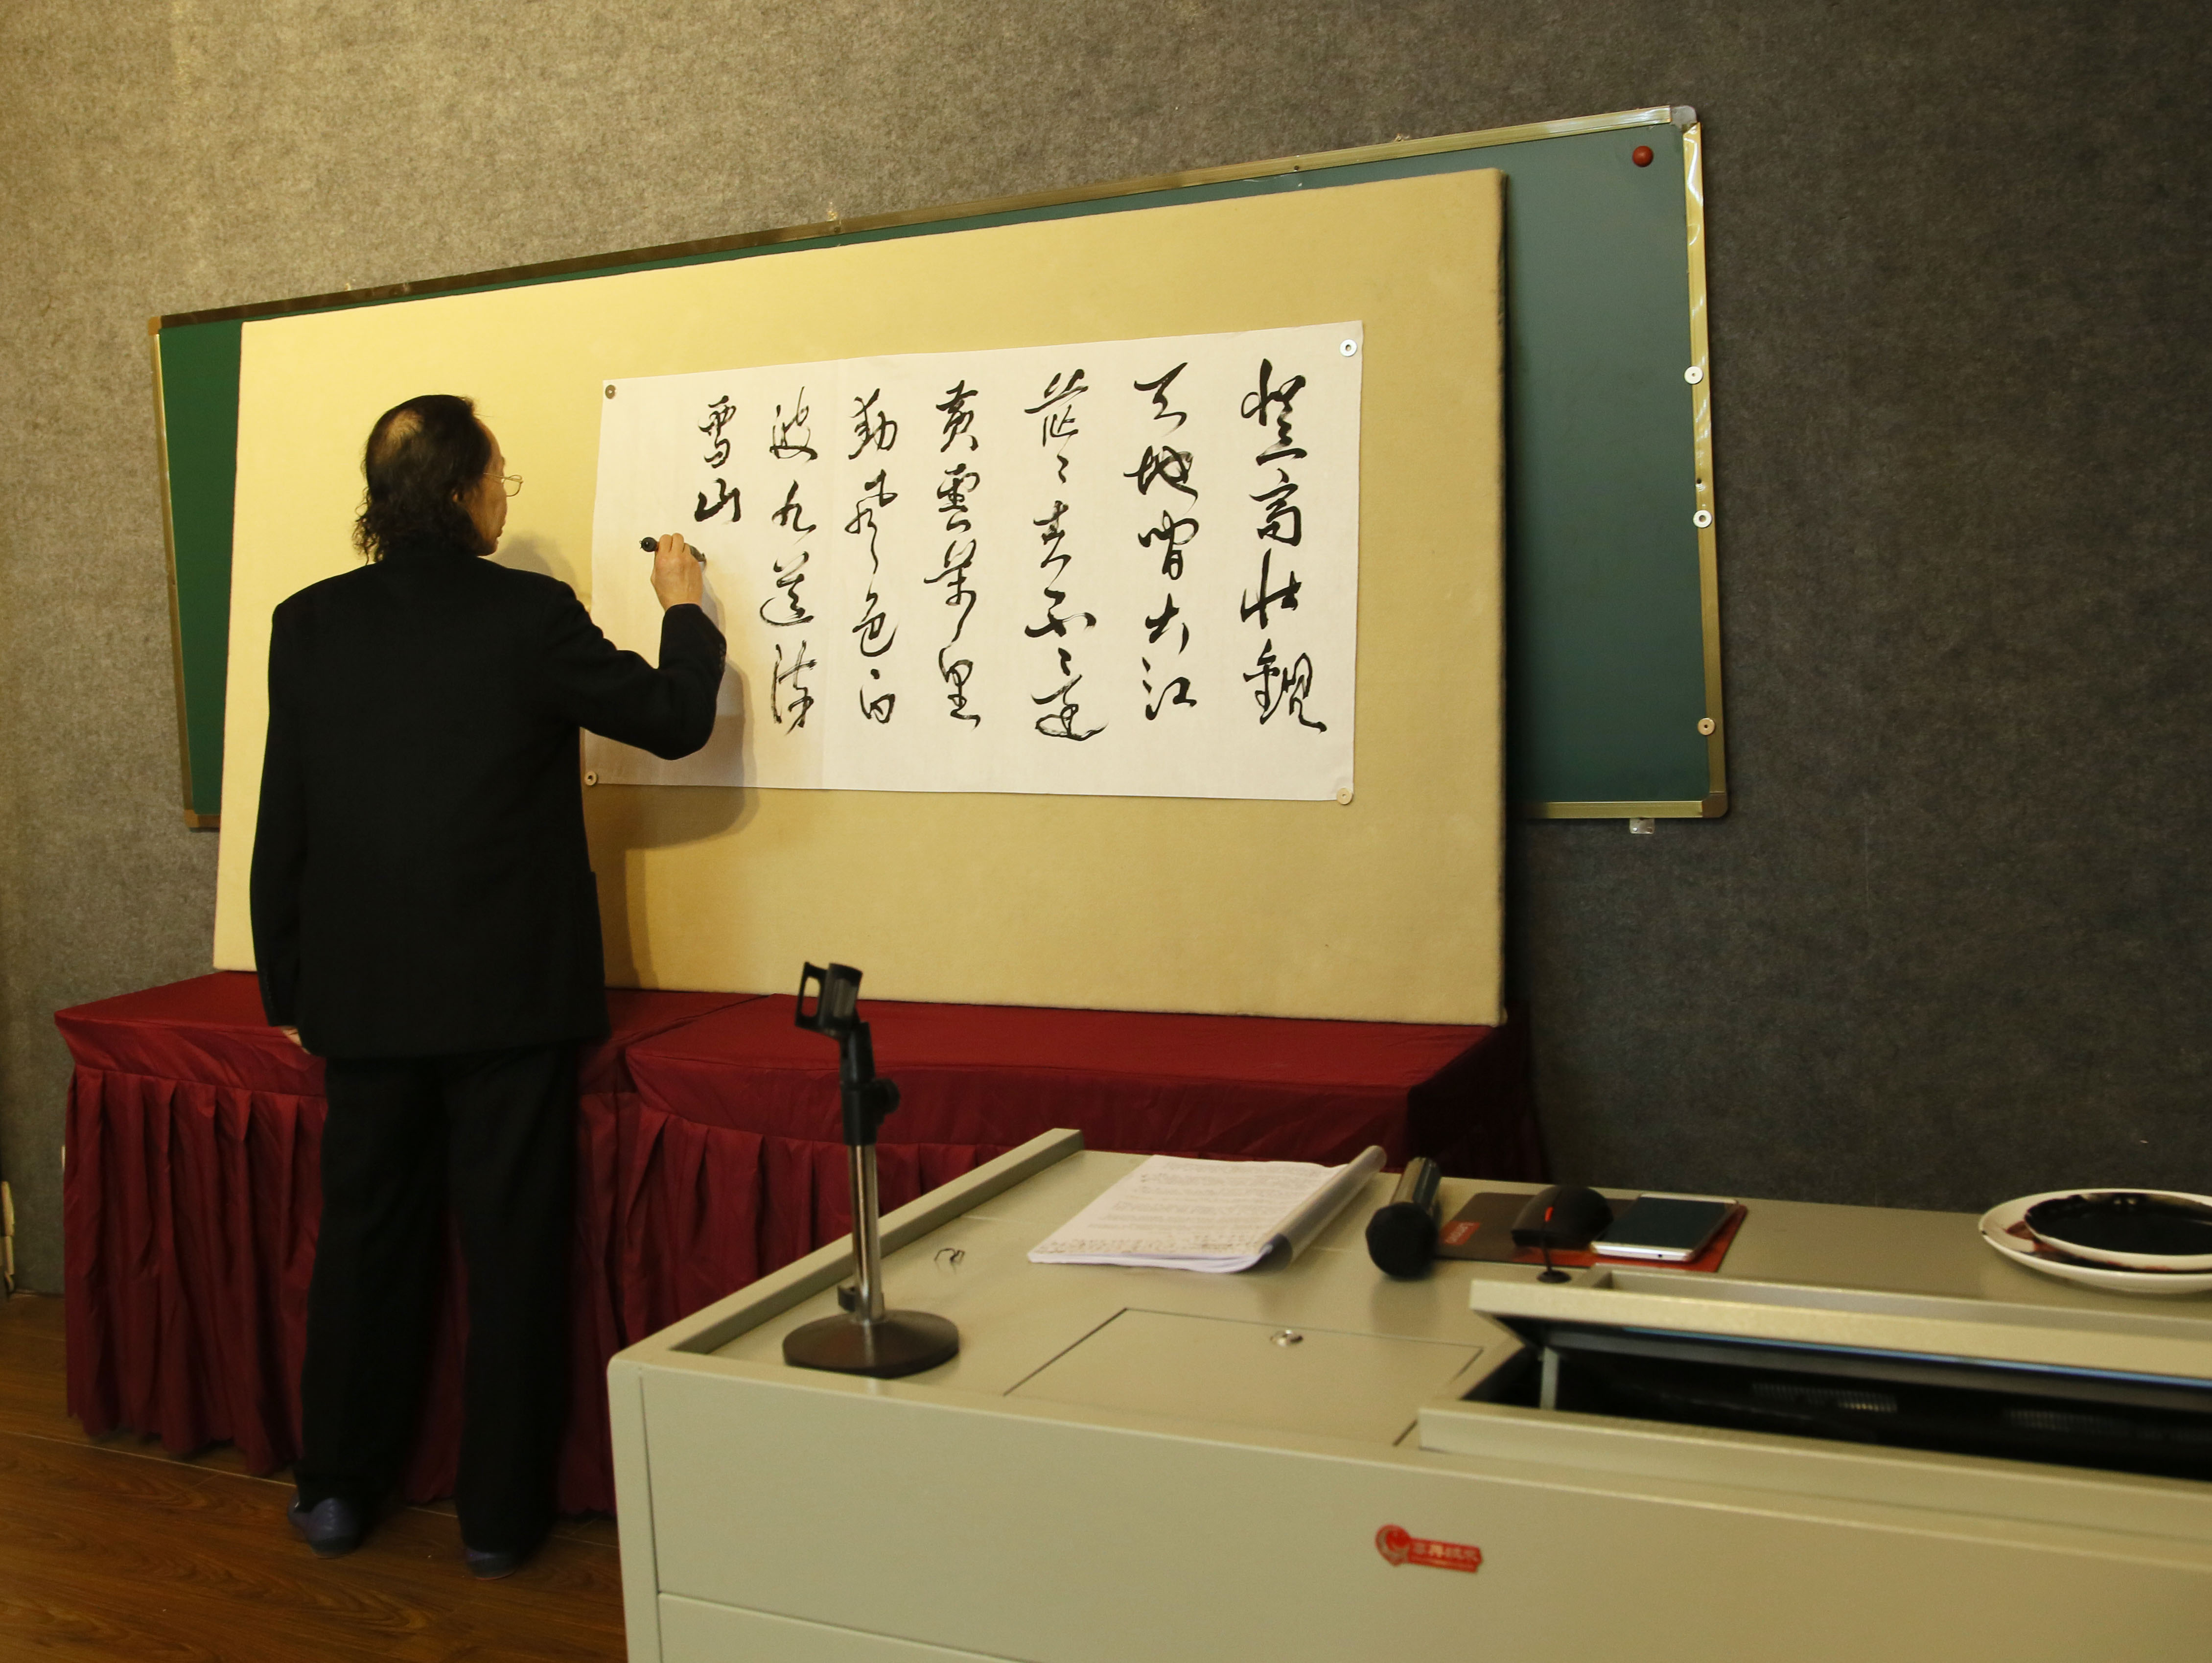 登高壮觀
天地間大江
茫〻去不〻還
黄雲萬里
動風色白
波九道流
雪山